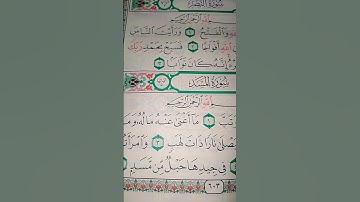 سُورَةُ النَّصْرِ
اللَّهِ الرَّحْمَٰنِ الرَّحِيمِ
وَالْفَتْحُ ١ وَرَأَيْتَ النَّاسَ
اللَّهِ أَفْوَاجًا ٢ فَسَبِّحْ بِحَمْدِ رَبِّكَ
إِنَّهُ كَانَ تَوَّابًا ٣
سُورَةُ المَسَدِ
اللَّهِ الرَّحْمَٰنِ الرَّحِيمِ
وَتَبَّ ١ مَا أَغْنَىٰ عَنْهُ مَالُهُ وَمَا
نَارًا ذَاتَ لَهَبٍ ٣ وَامْرَأَتُهُ
فِي جِيدِهَا حَبْلٌ مِّن مَّسَدٍ
٦٠٣